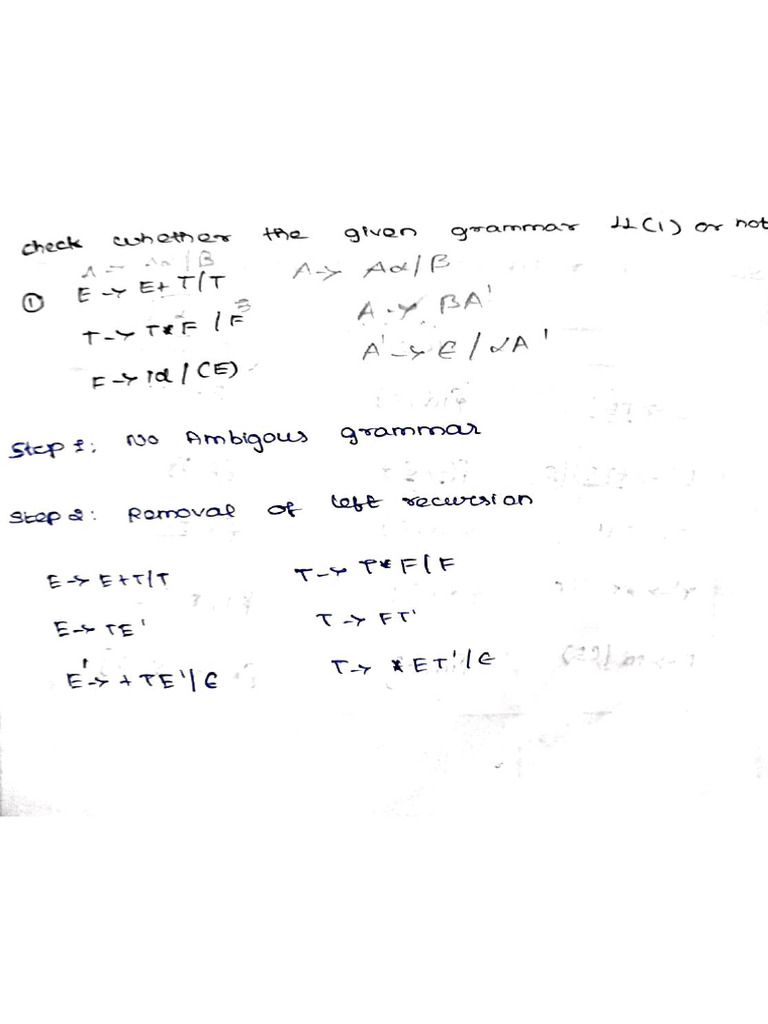 check whether the given grammar LL(1) or not
① E → E+T/T A → Aα/β
T → T*F/F A → βA'
F → id/(E) A' → ∈/αA'
Step 1: No Ambigous grammar
Step 2: Removal of left recursion
E → E+T/T T → T*F/F
E → TE' T → FT'
E' → +TE'/∈ T → *ET'/∈